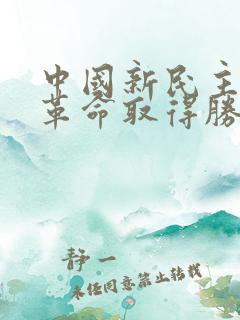 中國新民主
革命取得勝
静一
未经同意禁止转载